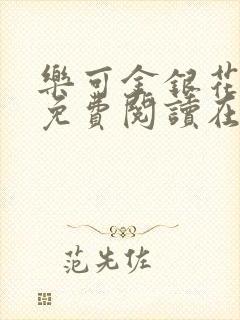 樂可金銀花
免費閱讀在
范先佐